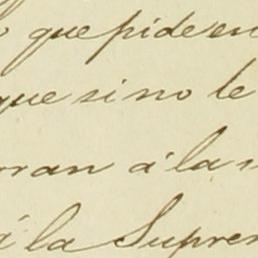 o que pide en
que si no le
rran á la
á la Suprem